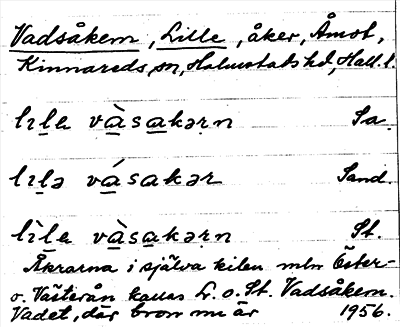 Vadsåkern, Lille, åker, Åmot,
Kinnareds sn, Halmstads hd, Hall. l.
lìlə và̱sa̱kəṛn Sa.
lìlə vá̱sa̱kər Sand.
lìlə và̱sa̱kəṛn St.
Åkrarna i själva kilen mln Öster-
o. Västerån kallas L. o. St. Vadsåkern.
Vadet, där bron nu är 1956.